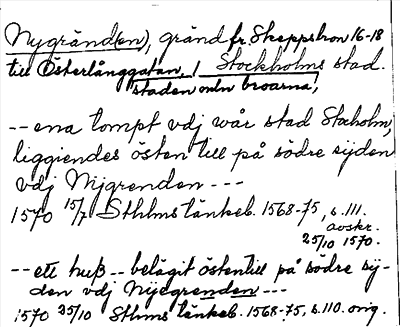 Nygränd(en), gränd fr. Skeppsbron 16-18
till Österlånggatan, i Stockholms stad.
staden mln broarna,
-- ena tompt vdj wår stad Stocholm,
liggiendes östen till på södre sijden
vdj Nijgrenden ---
1570 15/7 Sthlms tänkeb. 1568-75, s. 111.
avskr.
25/10 1570.
-- ett huß -- belägit östentill på södre sij-
den vdj Nijegrenden ---
1570 25/10 Sthlms tänkeb. 1568-75, s. 110. orig.